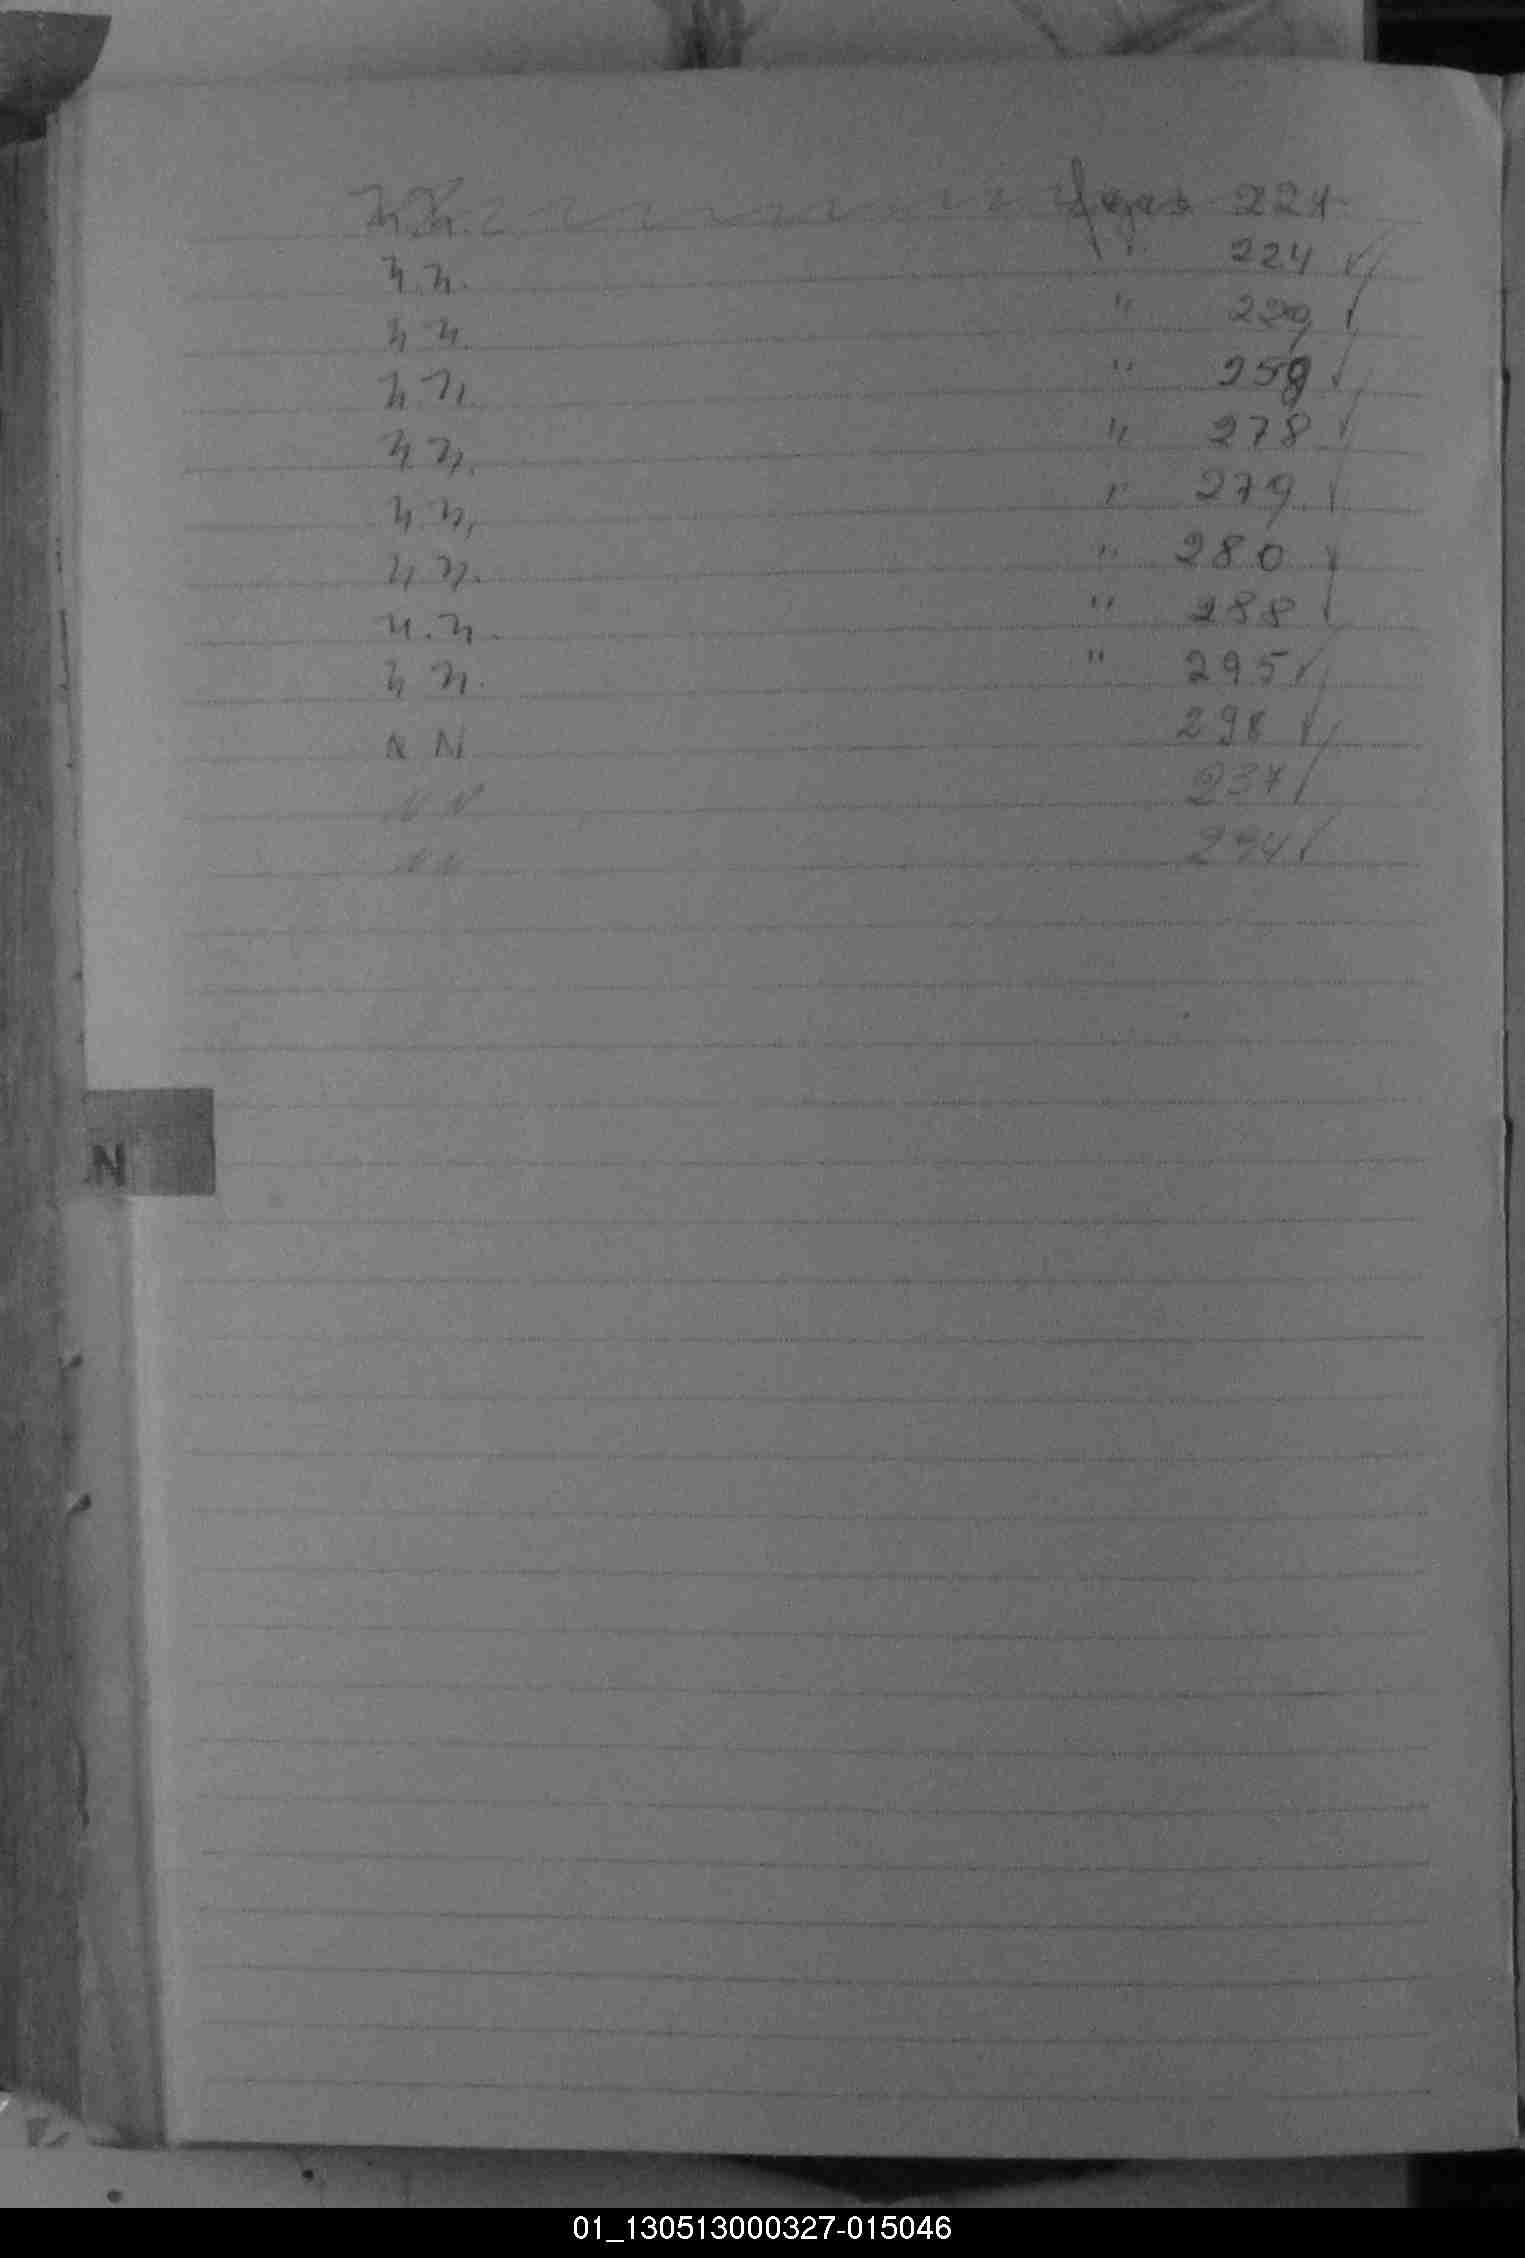 N.N. Fojas 221
N.N. " 224
N N. " 229
N.N. " 259
N N. " 278
N.N. " 279
N N. " 280
N.N. " 288
N N. " 295
N N 298
N N 237
N N 294
N
01_130513000327-015046